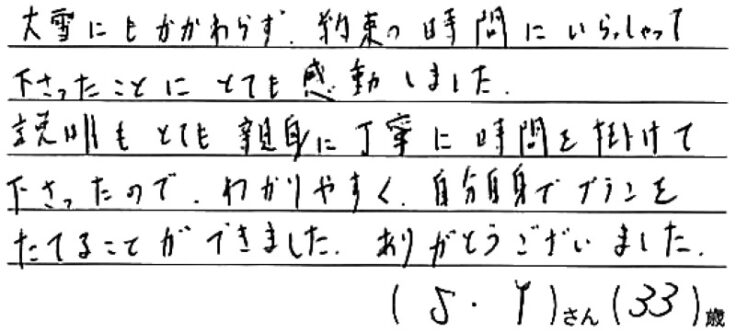 大雪にもかかわらず、約束の時間にいらっしゃって
下さったことにとても感動しました。
説明もとても親身に丁寧に時間を掛けて
下さったので、わかりやすく、自分自身でプランを
たてることができました。ありがとうございました。
(S・Y)さん(33)歳